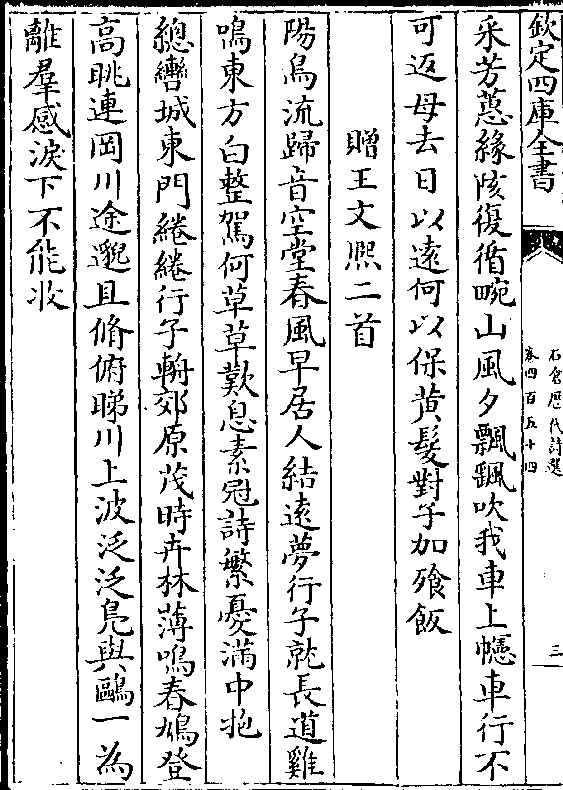 欽定四庫全書
石倉歷代詩選
卷四百五十四
三
采芳蕙緣陔復循畹山風夕飄飄吹我車上幰車行不
可返母去日以遠何以保黃髮對子加飱飯
贈王文熈二首
陽鳥流歸音空堂春風早居人結遠夢行子就長道雞
鳴東方白整駕何草草歎息素冠詩繁憂滿中抱
總轡城東門綣綣行子輈郊原茂時卉林薄鳴春鳩登
高眺連岡川途邈且脩俯睇川上波泛泛鳧與鷗一為
離羣感淚下不能收